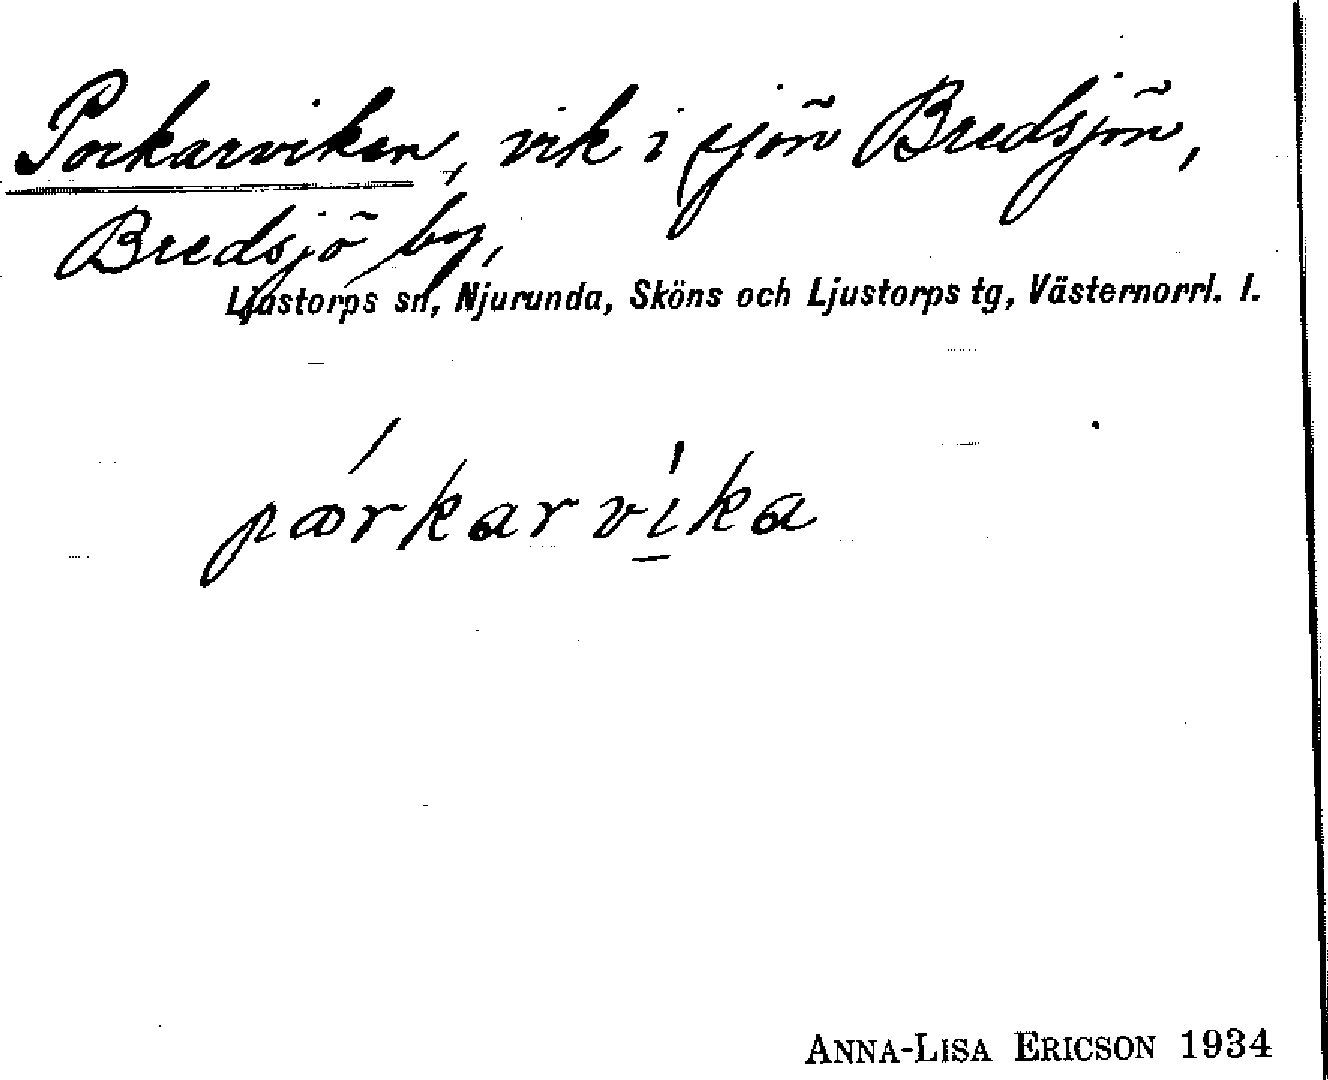 Porkarviken, vik i sjön Bredsjön,
Bredsjö by,
Ljustorps sn, Njurunda, Sköns och Ljustorps tg, Västernorrl. l.
pørkarvi̱ka
ANNA-LISA ERICSON 1934